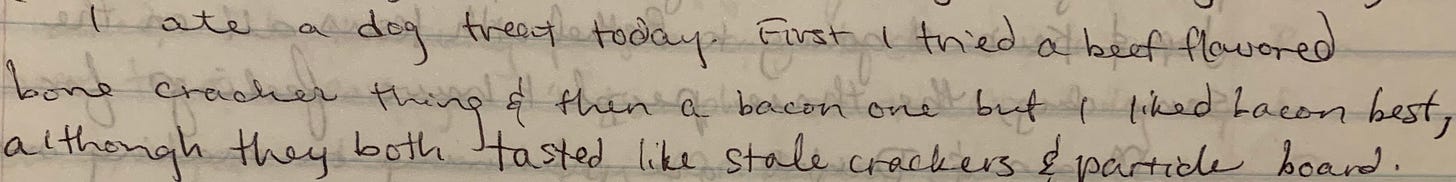 I ate a dog treat today. First I tried a beef flavored
bone cracker thing & then a bacon one but I liked bacon best,
although they both tasted like stale crackers & particle board.